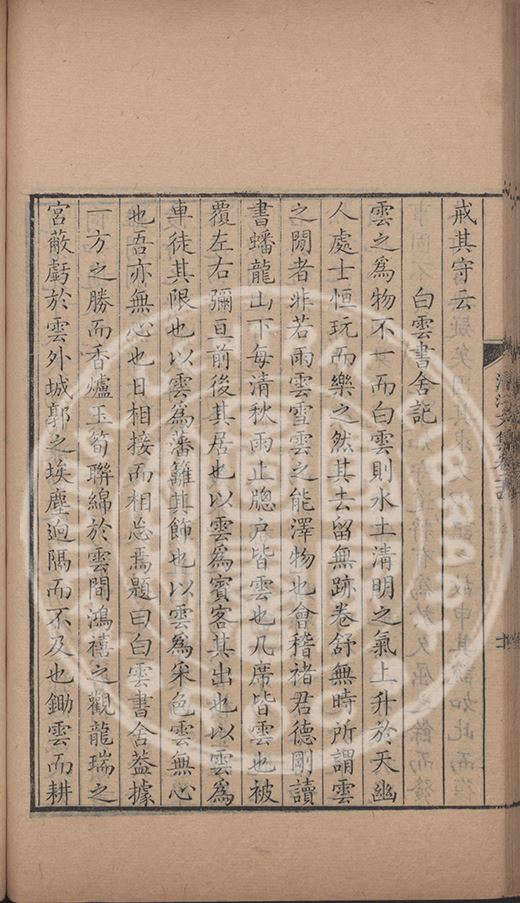 戒其守云
白雲書舍記
雲之爲物不一而白雲則水土清明之氣上升於天幽
人處士恒玩而樂之然其去留無跡卷舒無時所謂雲
之閒者非若雨雲雪雲之能澤物也會稽褚君德剛讀
書蟠龍山下每清秋雨止牕户皆雲也几席皆雲也被
覆左右彌亘前後其居也以雲爲賓客其出也以雲爲
車徒其限也以雲爲藩籬其飾也以雲爲采色雲無心
也吾亦無心也日相接而相忘焉題曰白雲書舍葢據
一方之勝而香爐玉筍聯綿於雲間鴻禧之觀龍瑞之
宮蔽虧於雲外城郭之埃塵逈隔而不及也鋤雲而耕